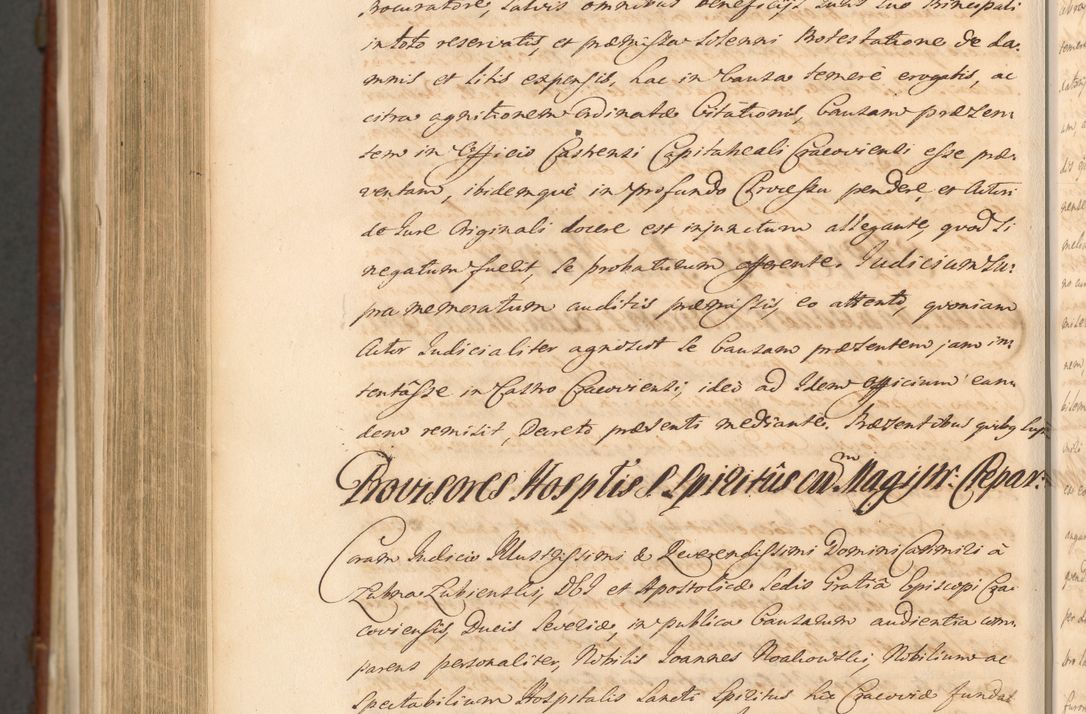 Procuratore, salvis omnibus beneficijs Juris suo Principali
in toto reservatis, et præmissa solenni Protestatione de da-
mnis et litis expensis, hac in Causa temerè erogatis, ac
citra agnitionem ordinatæ Citationis, Causam præsen-
tem in Officio Castrensi Capitaneali Cracoviensi esse præ-
ventam, ibidemquè in profundo Processu penderé, et Actori
de Jure Originali docere est injunctum allegante, quod si
negatum fuerit, se probaturum offerente. Judicium su-
pra memoratum auditis præmissis, eo attentò, quoniam
Actor Judicialiter agnoscit se Causam præsentem jam in-
tentâsse in Castro Cracoviensi, ideo ad Idem officium ean-
dem remisit, Decreto præsenti mediante. Præsentibus quibus supra
Provisores Hosptis S. Spiritûs cũ Magistr: Clepar:
Coram Judicio Illustrissimi & Reverendissimi Domini Casimiri à
Lubna Lubienski, DEI et Apostolicæ Sedis Gratiâ Episcopi Cra-
coviensis, Ducis Severiæ, in publica Causarum audientia com-
parens personaliter, Nobilis Joannes Noakowski, Nobilium ac
Spectabilium Hospitalis Sancti Spiritus hic Cracoviæ fundat